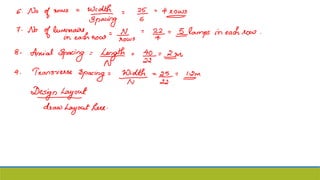 6. No of rows = Width / Spacing = 25 / 6 = 4 rows
7. No of luminaires in each row = N / rows = 22 / 4 = 5 lamps in each row.
8. Axial Spacing = Length / N = 40 / 22 = 2m
9. Transverse Spacing = Width / N = 25 / 22 = 12m
Design Layout
draw Layout here.